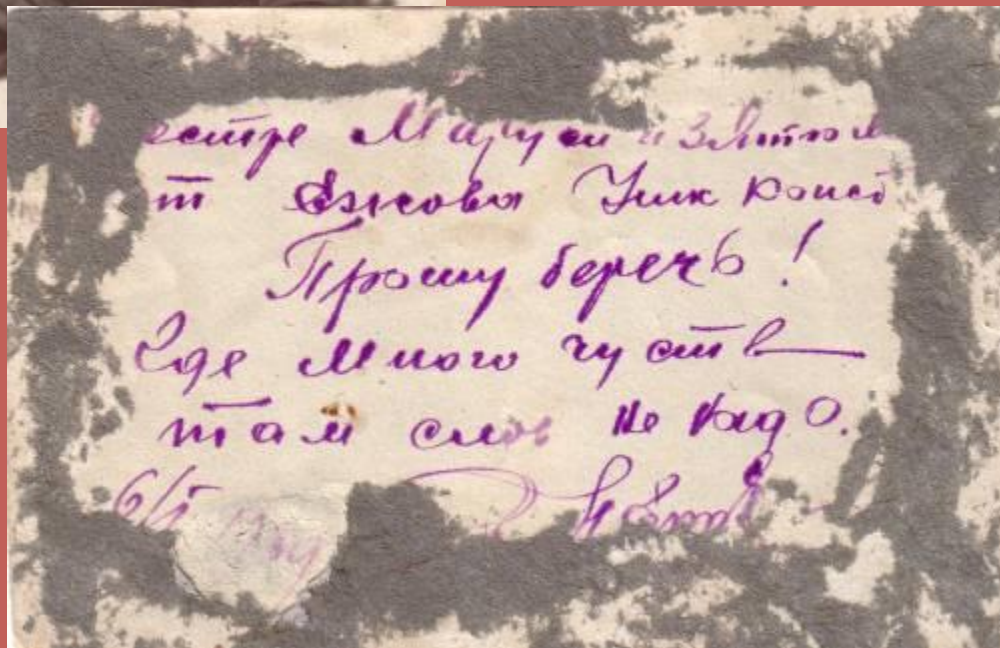 естре Маруси и зятю
т Ежова Ник
Прошу беречь!
Где много чуств —
там слов не надо.
6/I